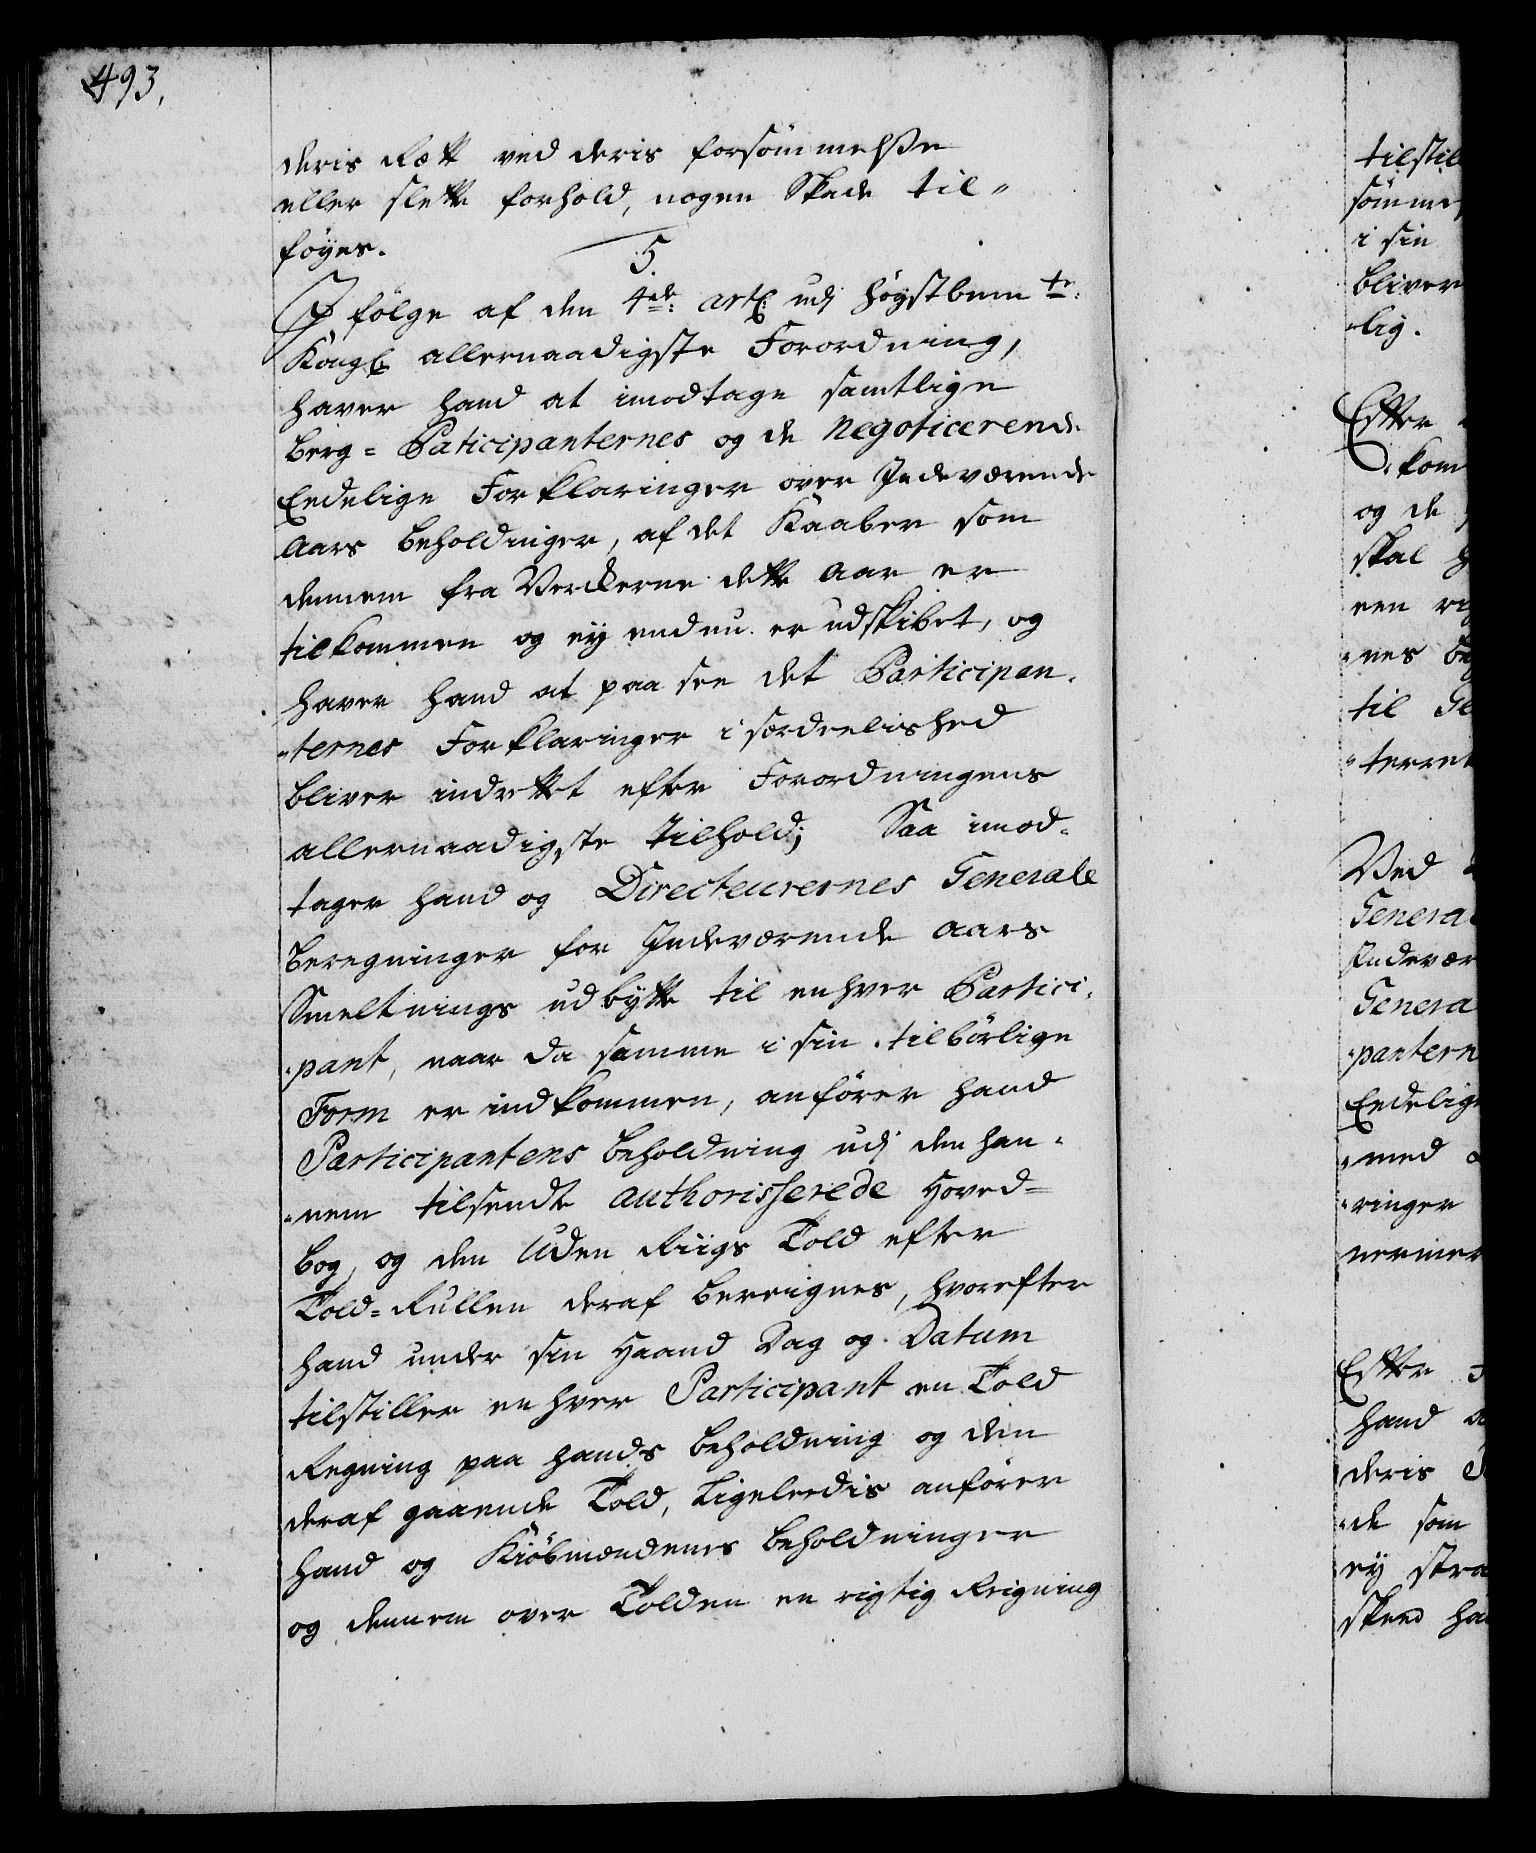 493.
deris Rætt ved deris forsömmelsse
eller slette forhold, nogen Skade til"
föyes.
5.
J fölge af den 4de: artl: udj höystbem te:
Kongl: allernaadigste Forordning,
haver hand at imodtage samtlige
berg= Paticipanternes og de Negoticerende
Endelige Forklaringer over Jndeværende
Aars beholdinger, af det Kaaber som
dennem fra Verckerne dette Aar er
tilkommen og ey endnu er udskibet, og
haver hand at paa see det Participan-
"ternes Forklaringer i særdeelished
bliver indrettet efter Forordningens
allernaadigste tilhold; Saa imod-
tager hand og Directeurernes Generale
beregninger for Jndeværende Aars
Smeltnings udbytte til enhver Partici-
"pant, naar da samme i sin tilbörlige
Form er indkommen, anförer hand
Participantens beholdning udj den han-
"nem tilsendte authorisserede Hoved=
bog, og den Uden Riigs Told efter
Told=Rullen deraf bereignes, hvorefter
hand under sin Haand Dag og Datum
tilstiller enhver Participant en Told
Regning paa hands beholdning og den
deraf gaaende Told, Ligeleedis anförer
hand og Kiöbmændenes beholdninger
og dennem over Tolden en rigtig Reigning
tilstil
sömme
i sin
bliver
"lig.
Efter
kom
og de
skal
een
"nes
til
"terret
Ved
General
Jndevær
Genera
"pantern
Endelig
"med
"ringer
Efter
hand
deris
"de som
ey stra